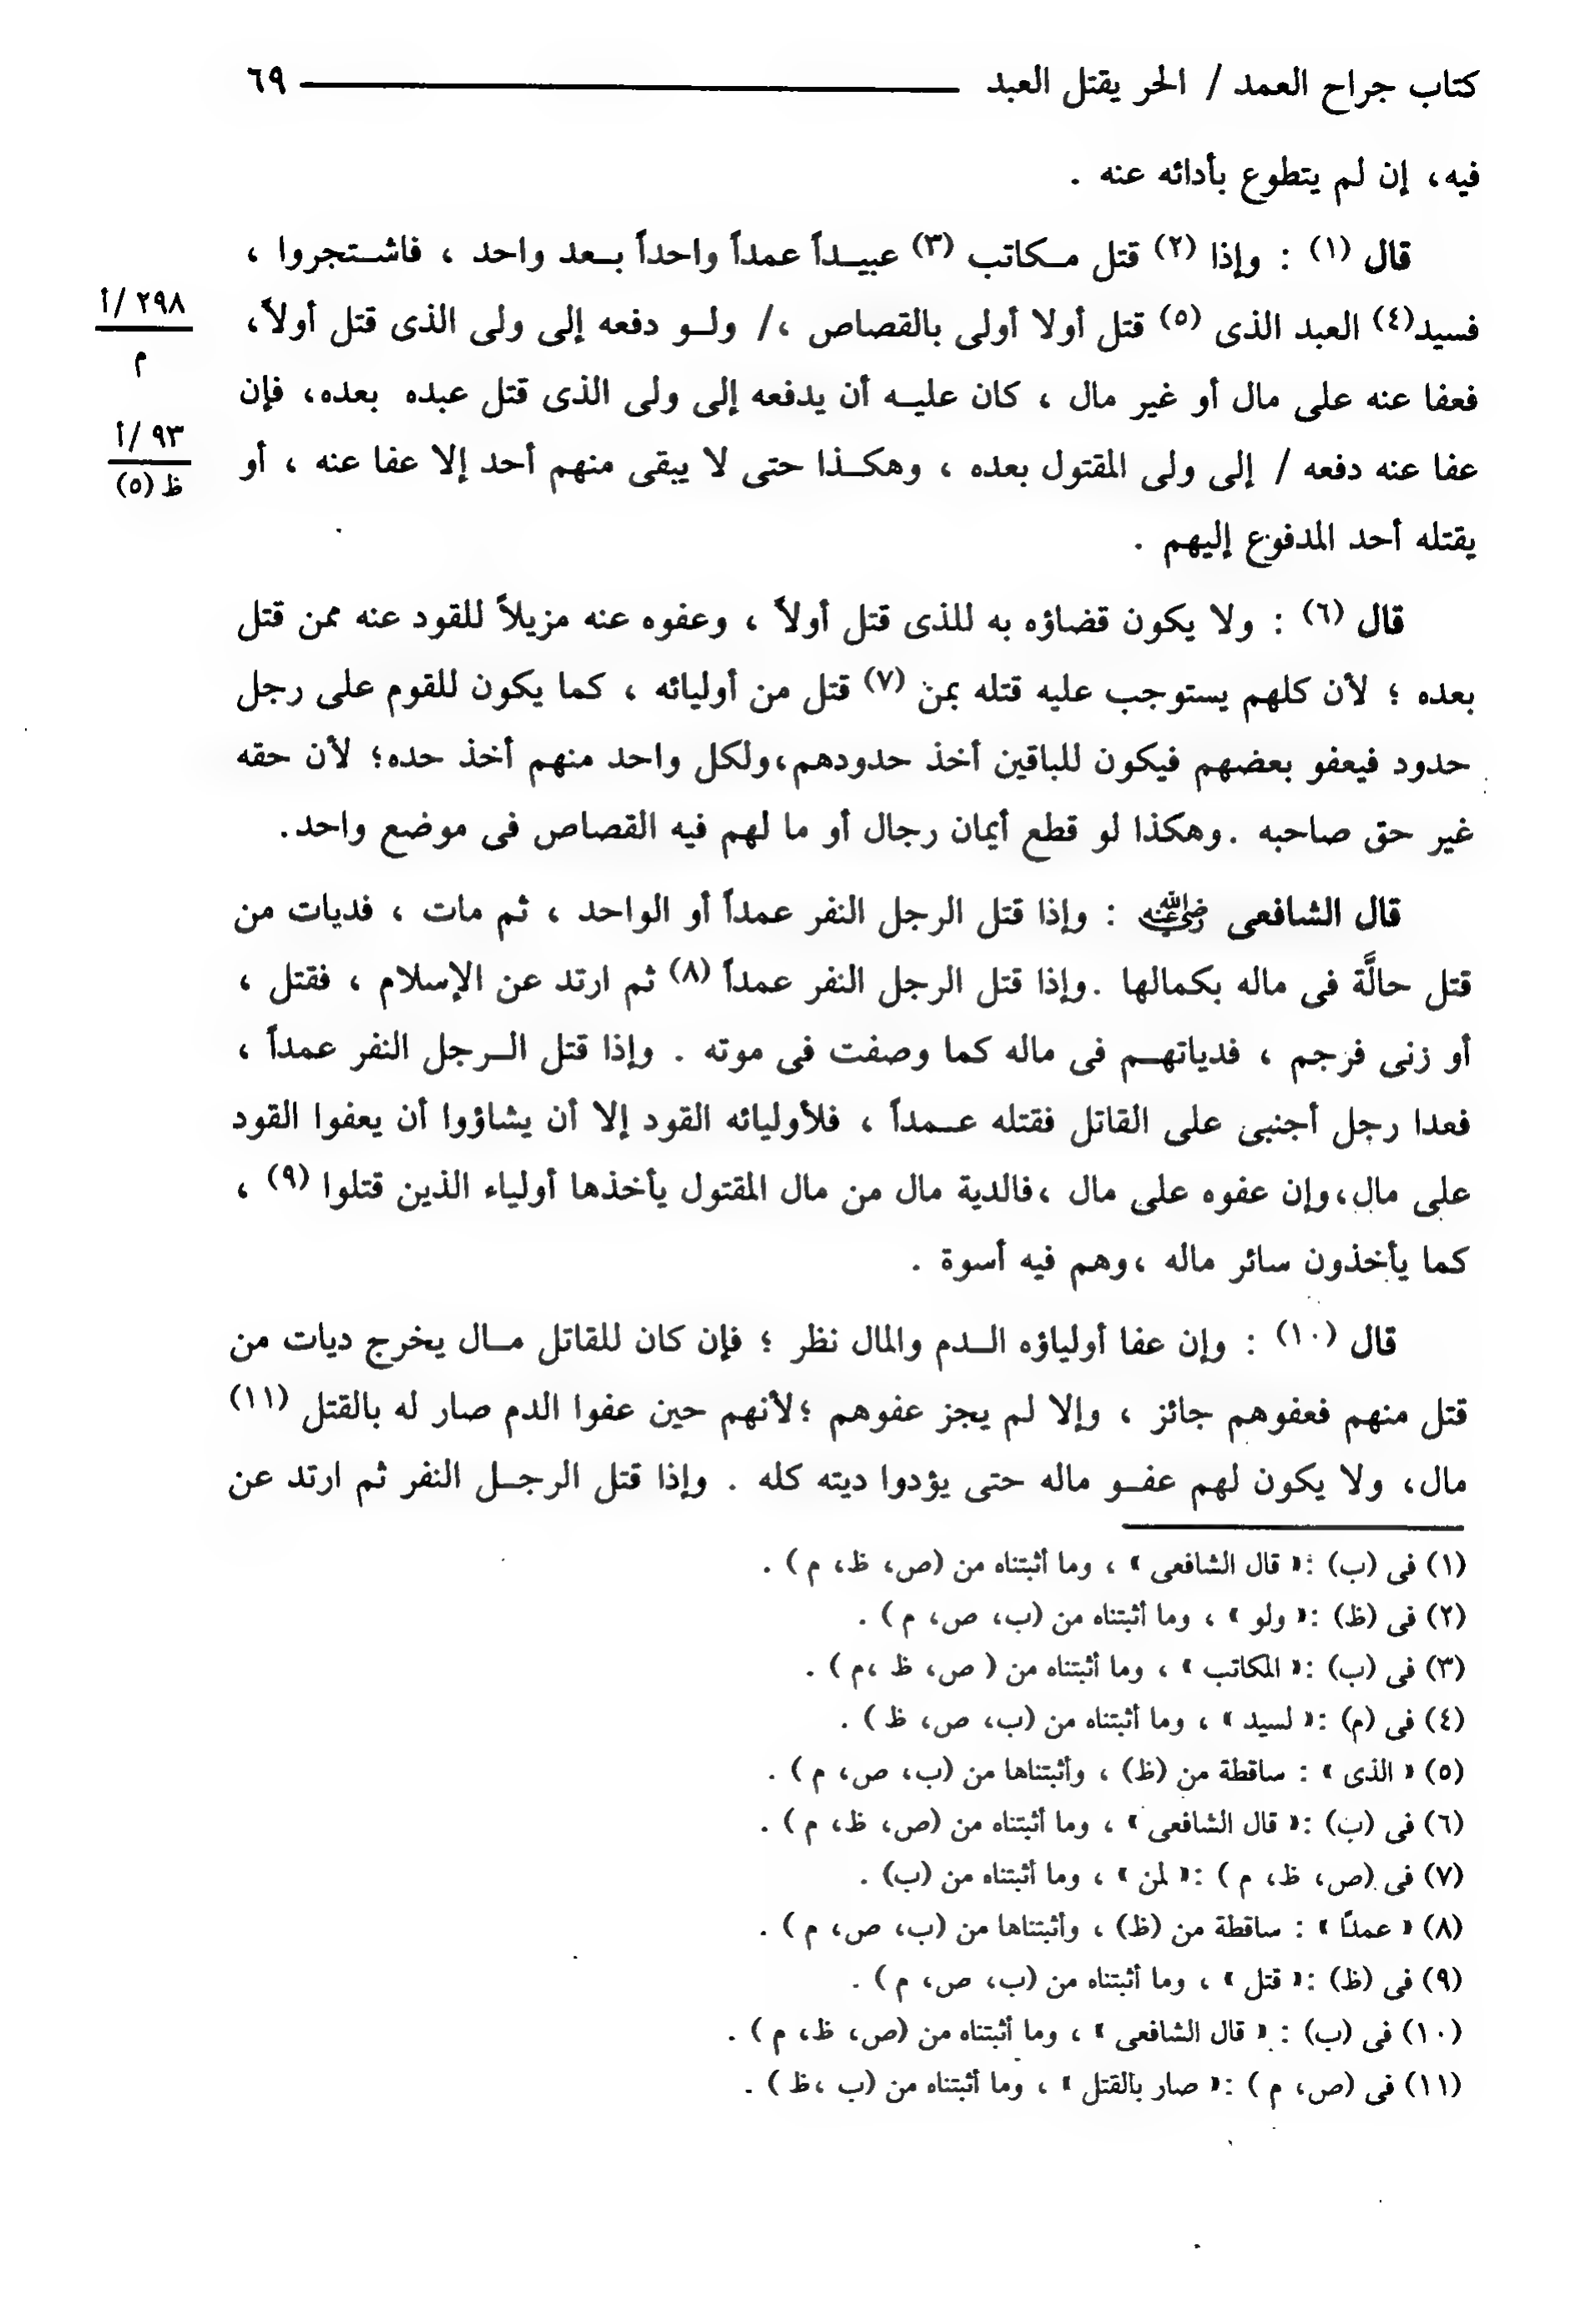 كتاب جراح العمد / الحر يقتل العبد ٦٩
فيه، إن لم يتطوع بأدائه عنه .
قال (١) : وإذا (٢) قتل مكاتب (٣) عبيداً عمداً واحداً بعد واحد ، فاشتجروا ،
فسيد(٤) العبد الذى (٥) قتل أولا أولى بالقصاص ،/ ولو دفعه إلى ولى الذى قتل أولاً،
٢٩٨ /أ
م
فعفا عنه على مال أو غير مال ، كان عليه أن يدفعه إلى ولى الذى قتل عبده بعده، فإن
عفا عنه دفعه / إلى ولى المقتول بعده ، وهكذا حتى لا يبقى منهم أحد إلا عفا عنه ، أو
٩٣ /أ
ظ (٥)
يقتله أحد المدفوع إليهم .
قال (٦) : ولا يكون قضاؤه به للذى قتل أولاً ، وعفوه عنه مزيلاً للقود عنه ممن قتل
بعده ؛ لأن كلهم يستوجب عليه قتله بمن (٧) قتل من أوليائه ، كما يكون للقوم على رجل
حدود فيعفو بعضهم فيكون للباقين أخذ حدودهم،ولكل واحد منهم أخذ حده؛ لأن حقه
غير حق صاحبه .وهكذا لو قطع أيمان رجال أو ما لهم فيه القصاص فى موضع واحد.
قال الشافعى رضي الله عنه : وإذا قتل الرجل النفر عمداً أو الواحد ، ثم مات ، فديات من
قتل حالَّة فى ماله بكمالها .وإذا قتل الرجل النفر عمداً (٨) ثم ارتد عن الإسلام ، فقتل ،
أو زنى فرجم ، فدياتهم فى ماله كما وصفت فى موته . وإذا قتل الرجل النفر عمداً ،
فعدا رجل أجنبى على القاتل فقتله عمداً ، فلأوليائه القود إلا أن يشاؤوا أن يعفوا القود
على مال،وإن عفوه على مال ،فالدية مال من مال المقتول يأخذها أولياء الذين قتلوا (٩) ،
كما يأخذون سائر ماله ،وهم فيه أسوة .
قال (١٠) : وإن عفا أولياؤه الدم والمال نظر ؛ فإن كان للقاتل مال يخرج ديات من
قتل منهم فعفوهم جائز ، وإلا لم يجز عفوهم ؛لأنهم حين عفوا الدم صار له بالقتل (١١)
مال، ولا يكون لهم عفو ماله حتى يؤدوا ديته كله . وإذا قتل الرجل النفر ثم ارتد عن
(١) فى (ب) :« قال الشافعى » ، وما أثبتناه من (ص، ظ، م ) .
(٢) فى (ظ) :« ولو » ، وما أثبتناه من (ب، ص، م ) .
(٣) فى (ب) :« المكاتب » ، وما أثبتناه من ( ص، ظ ،م ) .
(٤) فى (م) :« لسيد » ، وما أثبتناه من (ب، ص، ظ ) .
(٥) « الذى » : ساقطة من (ظ) ، وأثبتناها من (ب، ص، م ) .
(٦) فى (ب) :« قال الشافعى » ، وما أثبتناه من (ص، ظ، م ) .
(٧) فى (ص، ظ، م ) :« لمن » ، وما أثبتناه من (ب) .
(٨) « عمدًا » : ساقطة من (ظ) ، وأثبتناها من (ب، ص، م ) .
(٩) فى (ظ) :« قتل » ، وما أثبتناه من (ب، ص، م ) .
(١٠) فى (ب) : « قال الشافعى » ، وما أثبتناه من (ص، ظ، م ) .
(١١) فى (ص، م ) :« صار بالقتل » ، وما أثبتناه من (ب ،ظ ) .